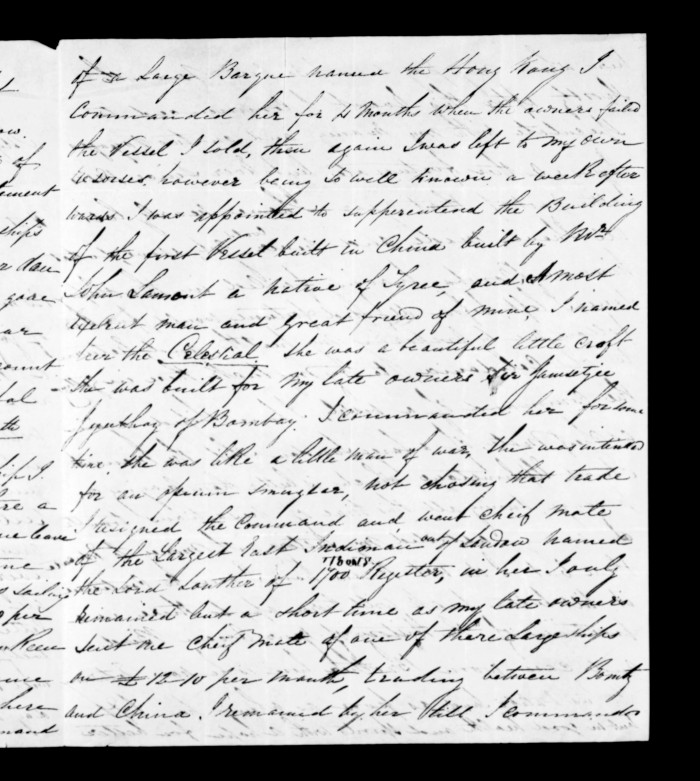 of a Large Barque named the Hong Kong I
Commanded her for 4 Months when the owners failed
the Vessel I sold, then again I was left to my own
however being so well known a week after
wards I was appointed to supperentend the Building
of the first Vessel built in China built by Mr
John Lamont a native of Tyree, and A most
man and great friend of mine, I named
her the Celestial she was a beautiful little craft
she was built for my late owners Sir Jamsetjee
of Bombay. I commanded her for some
time, she was like a little man of war, she was intended
for an opium smugler, not chosing that trade
I resigned the Command and went cheif mate
of the Largest East Indiman out of London named
the Lord Louther of 1700 Tons Register, in her I only
remained but a short time as my late owners
sent me cheif mate of one of there Large ships
on £12-10 per month, trading between Bomby
and China. I remained by her till I command
ow.
of
ships
goae
ar
ount
th
hip I
re a
leave
me
sailing
per
me
here
mand